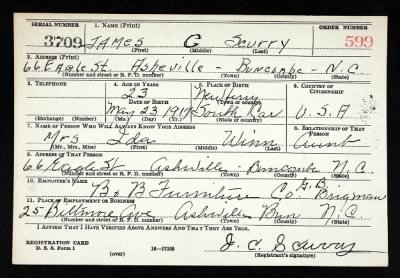 SERIAL NUMBER 1. NAME (Print) ORDER NUMBER
3709 JAMES G SCURRY 599
(First) (Middle) (Last)
2. ADDRESS (Print)
66 EAGLE St. Asheville - Buncombe - N.C
(Number and street or R. F. D. number) (Town) (County) (State)
3. TELEPHONE 4. AGE IN YEARS 5. PLACE OF BIRTH 6. COUNTRY OF CITIZENSHIP
23
DATE OF BIRTH (Town or county)
May 23 1917 South Car U.S.A
(Exchange) (Number) (Mo.) (Day) (Yr.) (State or country)
7. NAME OF PERSON WHO WILL ALWAYS KNOW YOUR ADDRESS 8. RELATIONSHIP OF THAT PERSON
Mrs Ida Winn Aunt
(Mr., Mrs., Miss) (First) (Middle) (Last)
9. ADDRESS OF THAT PERSON
66 Eagle St Ashville - Buncombe N.C.
(Number and street or R. F. D. number) (Town) (County) (State)
10. EMPLOYER'S NAME
B & B Furniture Co G.B. Brigman
11. PLACE OF EMPLOYMENT OR BUSINESS
25 Biltmore Ave Ashville Bun N.C.
(Number and street or R. F. D. number) (Town) (County) (State)
I AFFIRM THAT I HAVE VERIFIED ABOVE ANSWERS AND THAT THEY ARE TRUE.
REGISTRATION CARD
D. S. S. Form 1 (over) 16-17105 J. C. Scurry
(Registrant's signature)